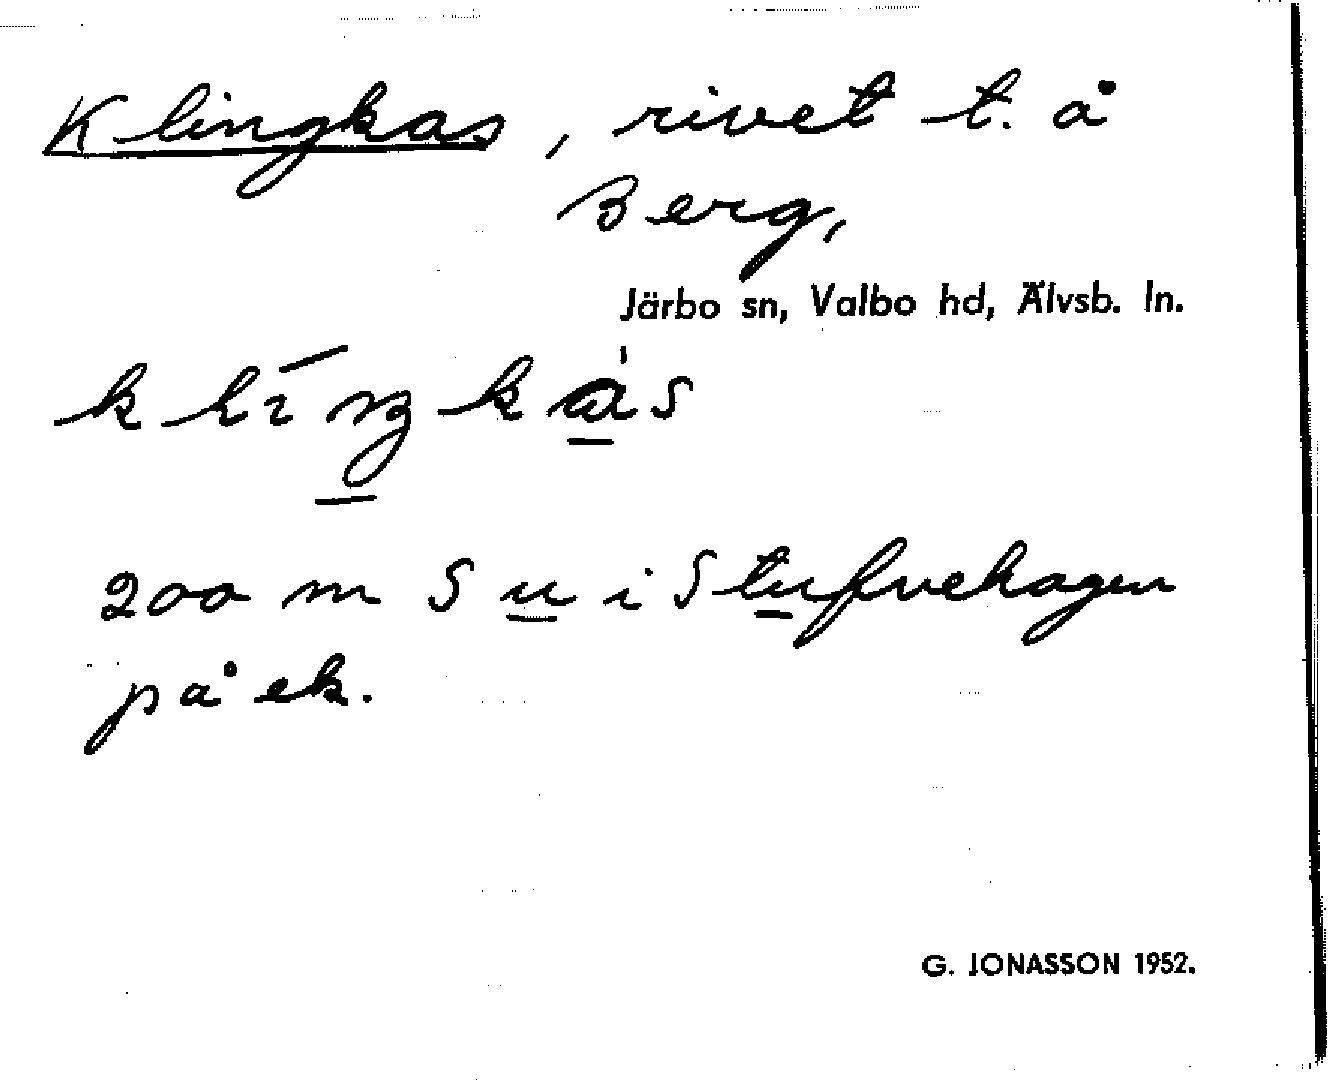 Klingkas, rivet t. å
Berg,
Järbo sn, Valbo hd, Älvsb. ln.
200 m S u i Stufvehagen
på ek.
G. JONASSON 1952.